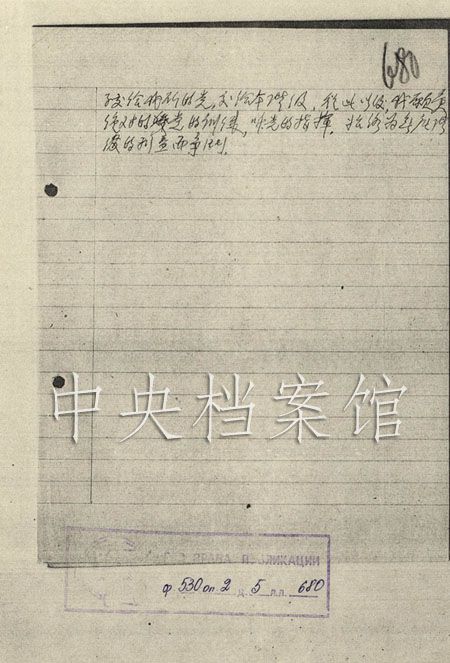 680
交给我们的党,交给本阶级.从此以后,我愿意
绝对的受党的训练,听党的指挥,始终为无产阶
级的利益而争斗!
中央档案馆
ПРАВА ПУБЛИКАЦИИ
ф 530 оп. 2 д. 5 л.л. 680